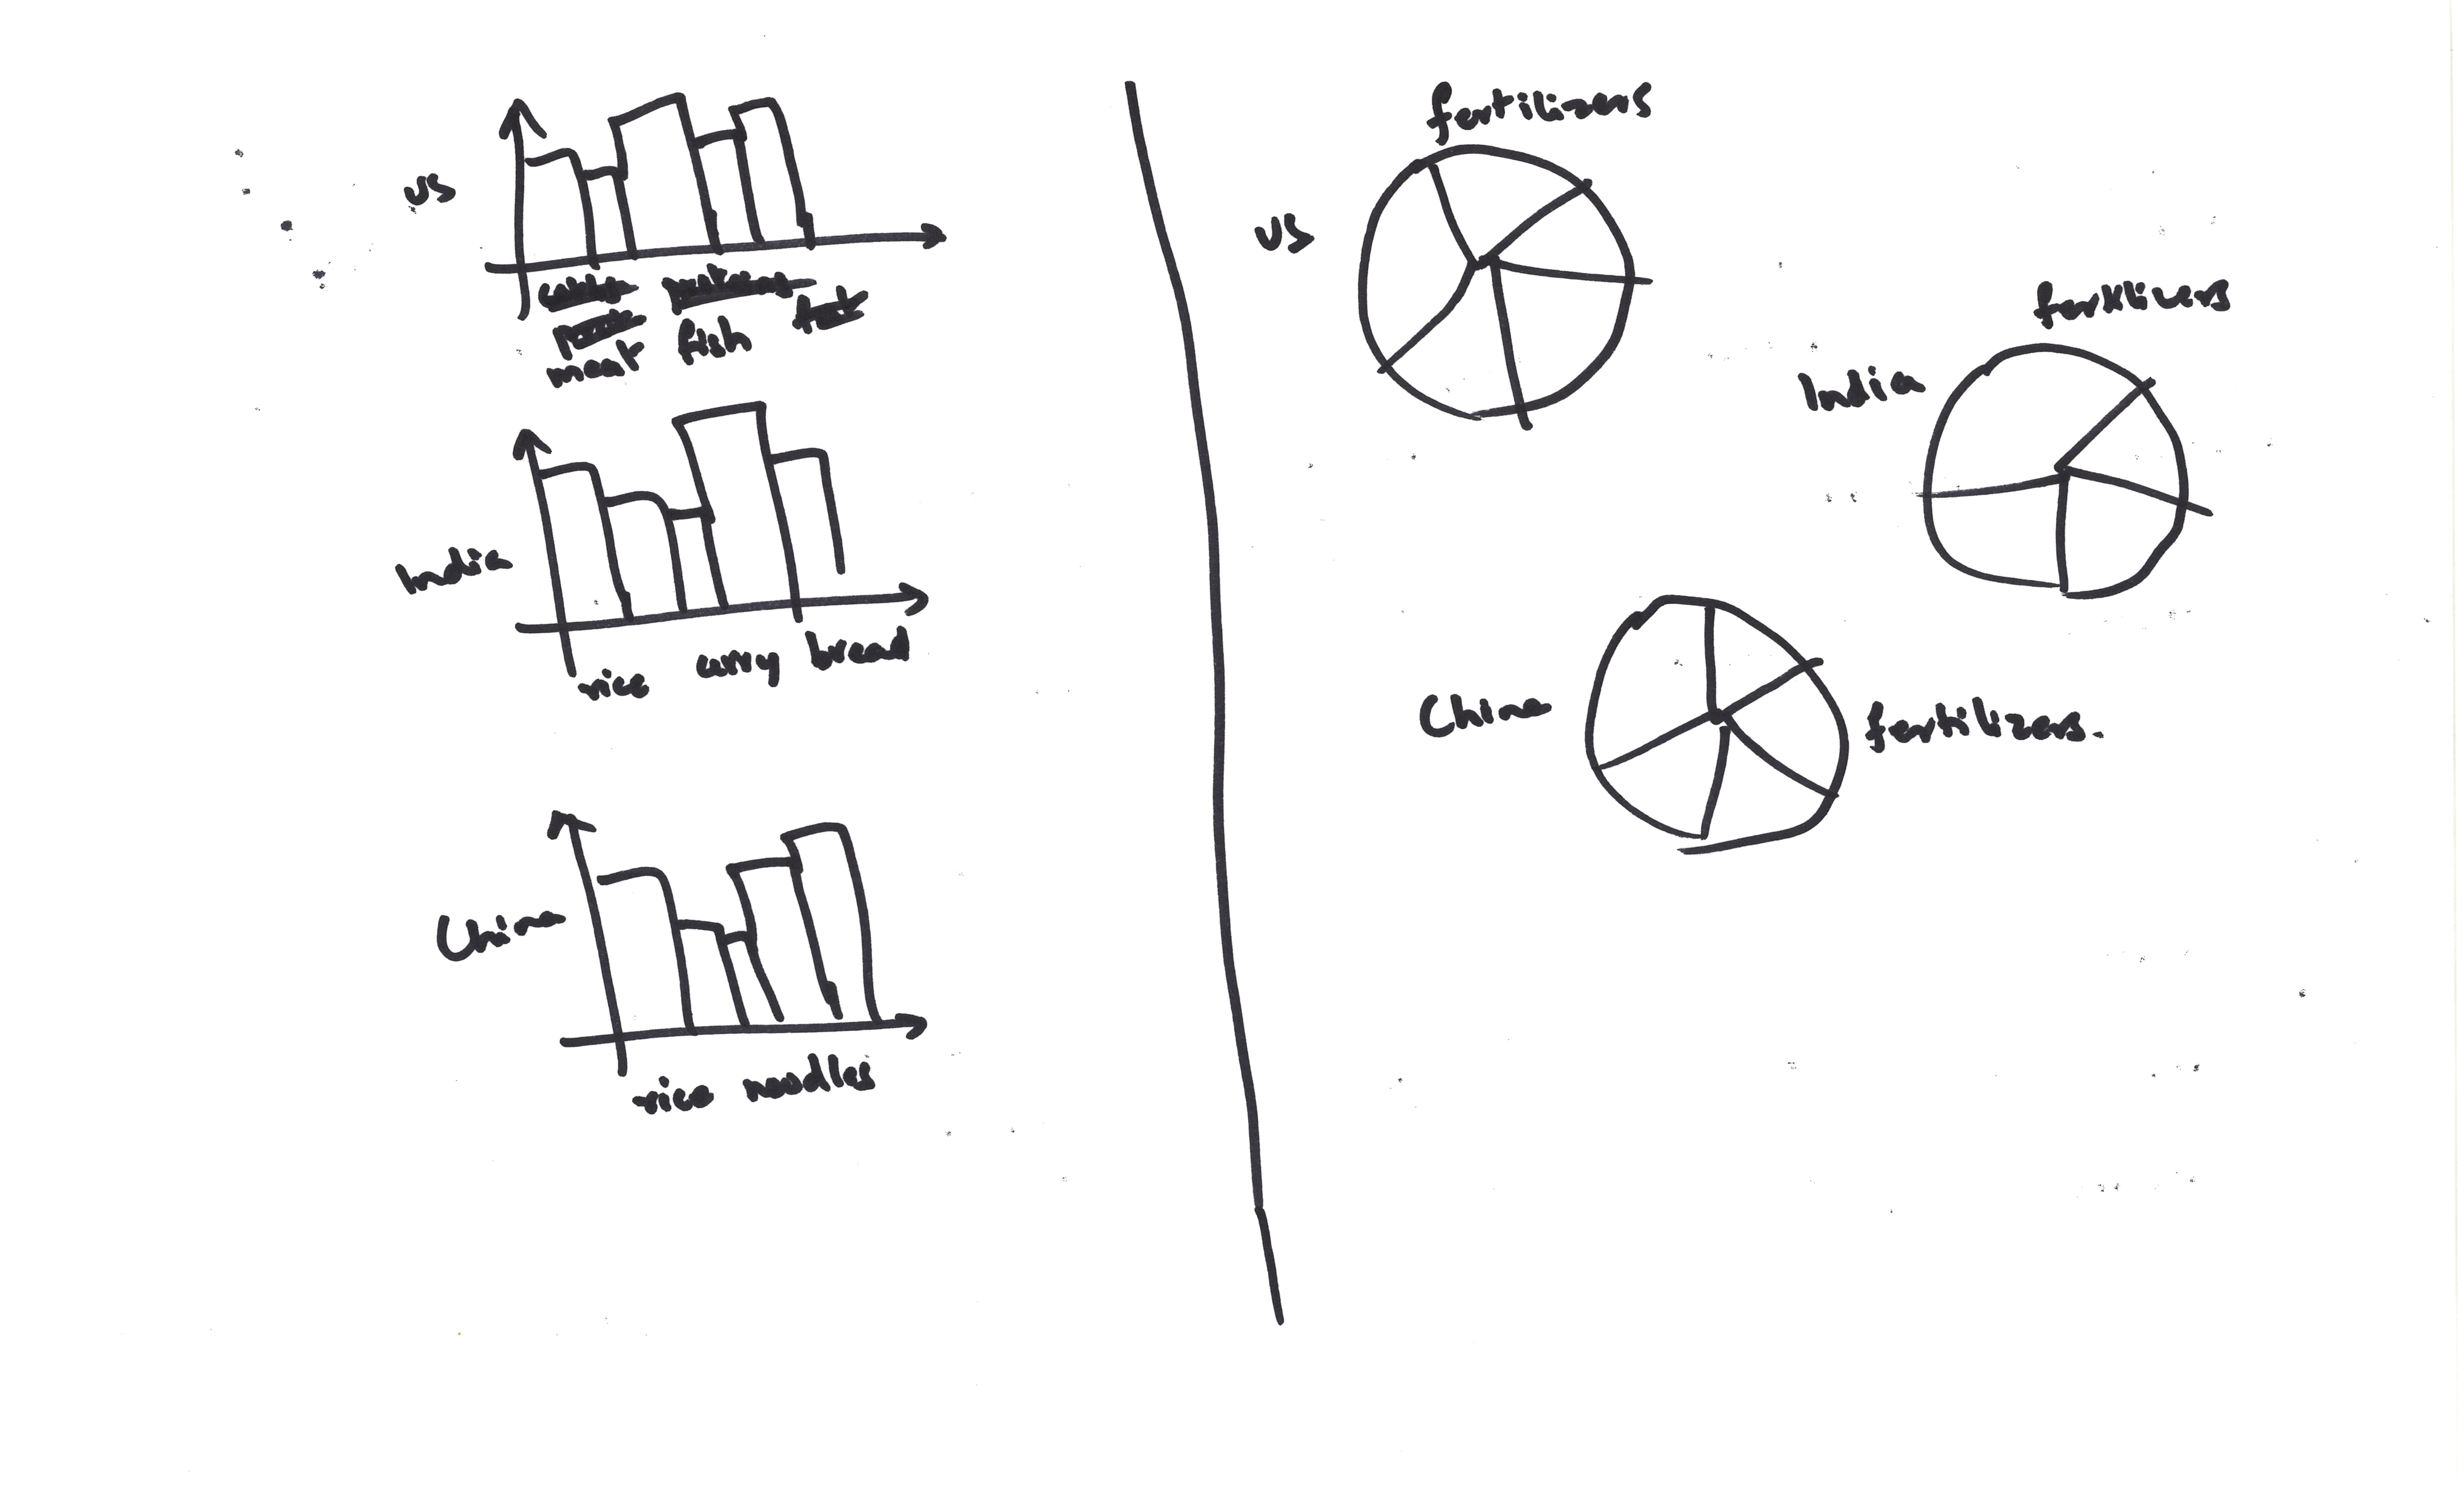 US
meat fish
India
rice curry bread
China
rice noodles
fertilizers
US
fertilizers
India
China
fertilizers.